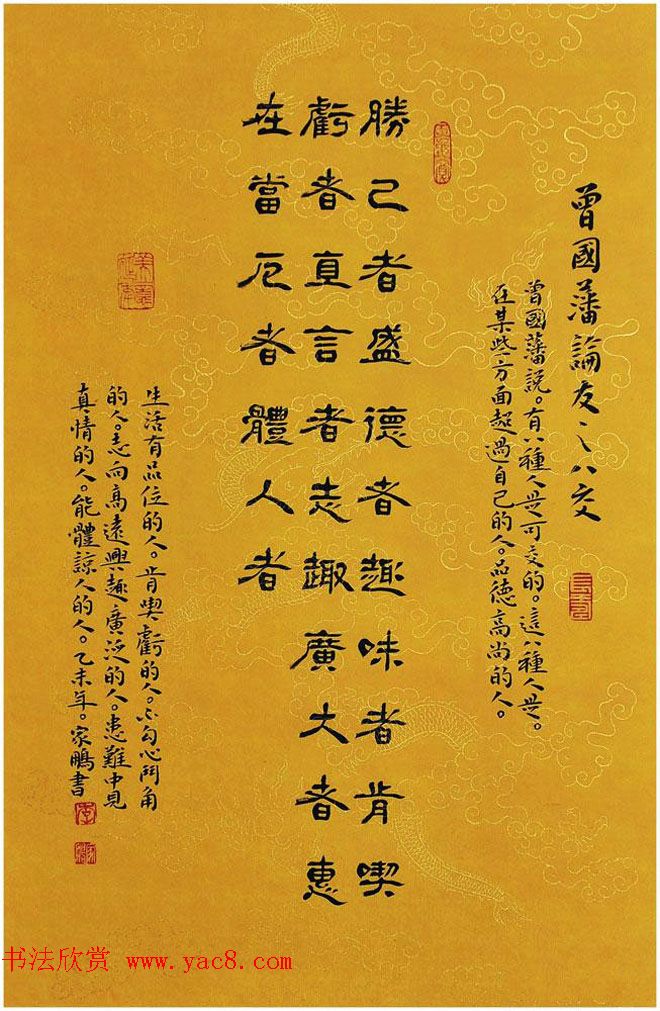 曾國藩論友之八交
曾國藩說。有八種人是可交的。這八種人是。
在某些方面超過自己的人。品德高尚的人。
勝己者盛德者趣味者肯喫
虧者直言者志趣廣大者惠
在當厄者體人者
生活有品位的人。肯喫虧的人。不勾心鬥角
的人。志向高遠興趣廣泛的人。患難中見
真情的人。能體諒人的人。乙未年。家鵬書
书法欣赏 www.yac8.com